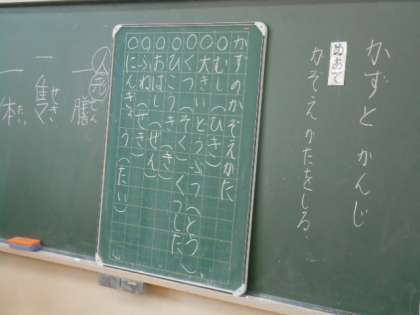 かずと かんじ
めあて
かぞえかたをしる。
かずのかぞえかた
○むし(ひき)
○大きいどうぶつ(とう)
○くつ(そく)くつした
○ひこうき(き)
○おはし(ぜん)
○ふね(せき)
○にんぎょう(たい)
一膳
ぜん
一隻
せき
一体
たい